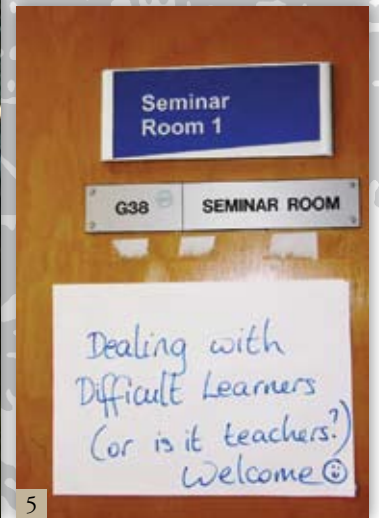 Seminar
Room 1
G38 SEMINAR ROOM
Dealing with
Difficult Learners
(or is it teachers?)
Welcome☺
5